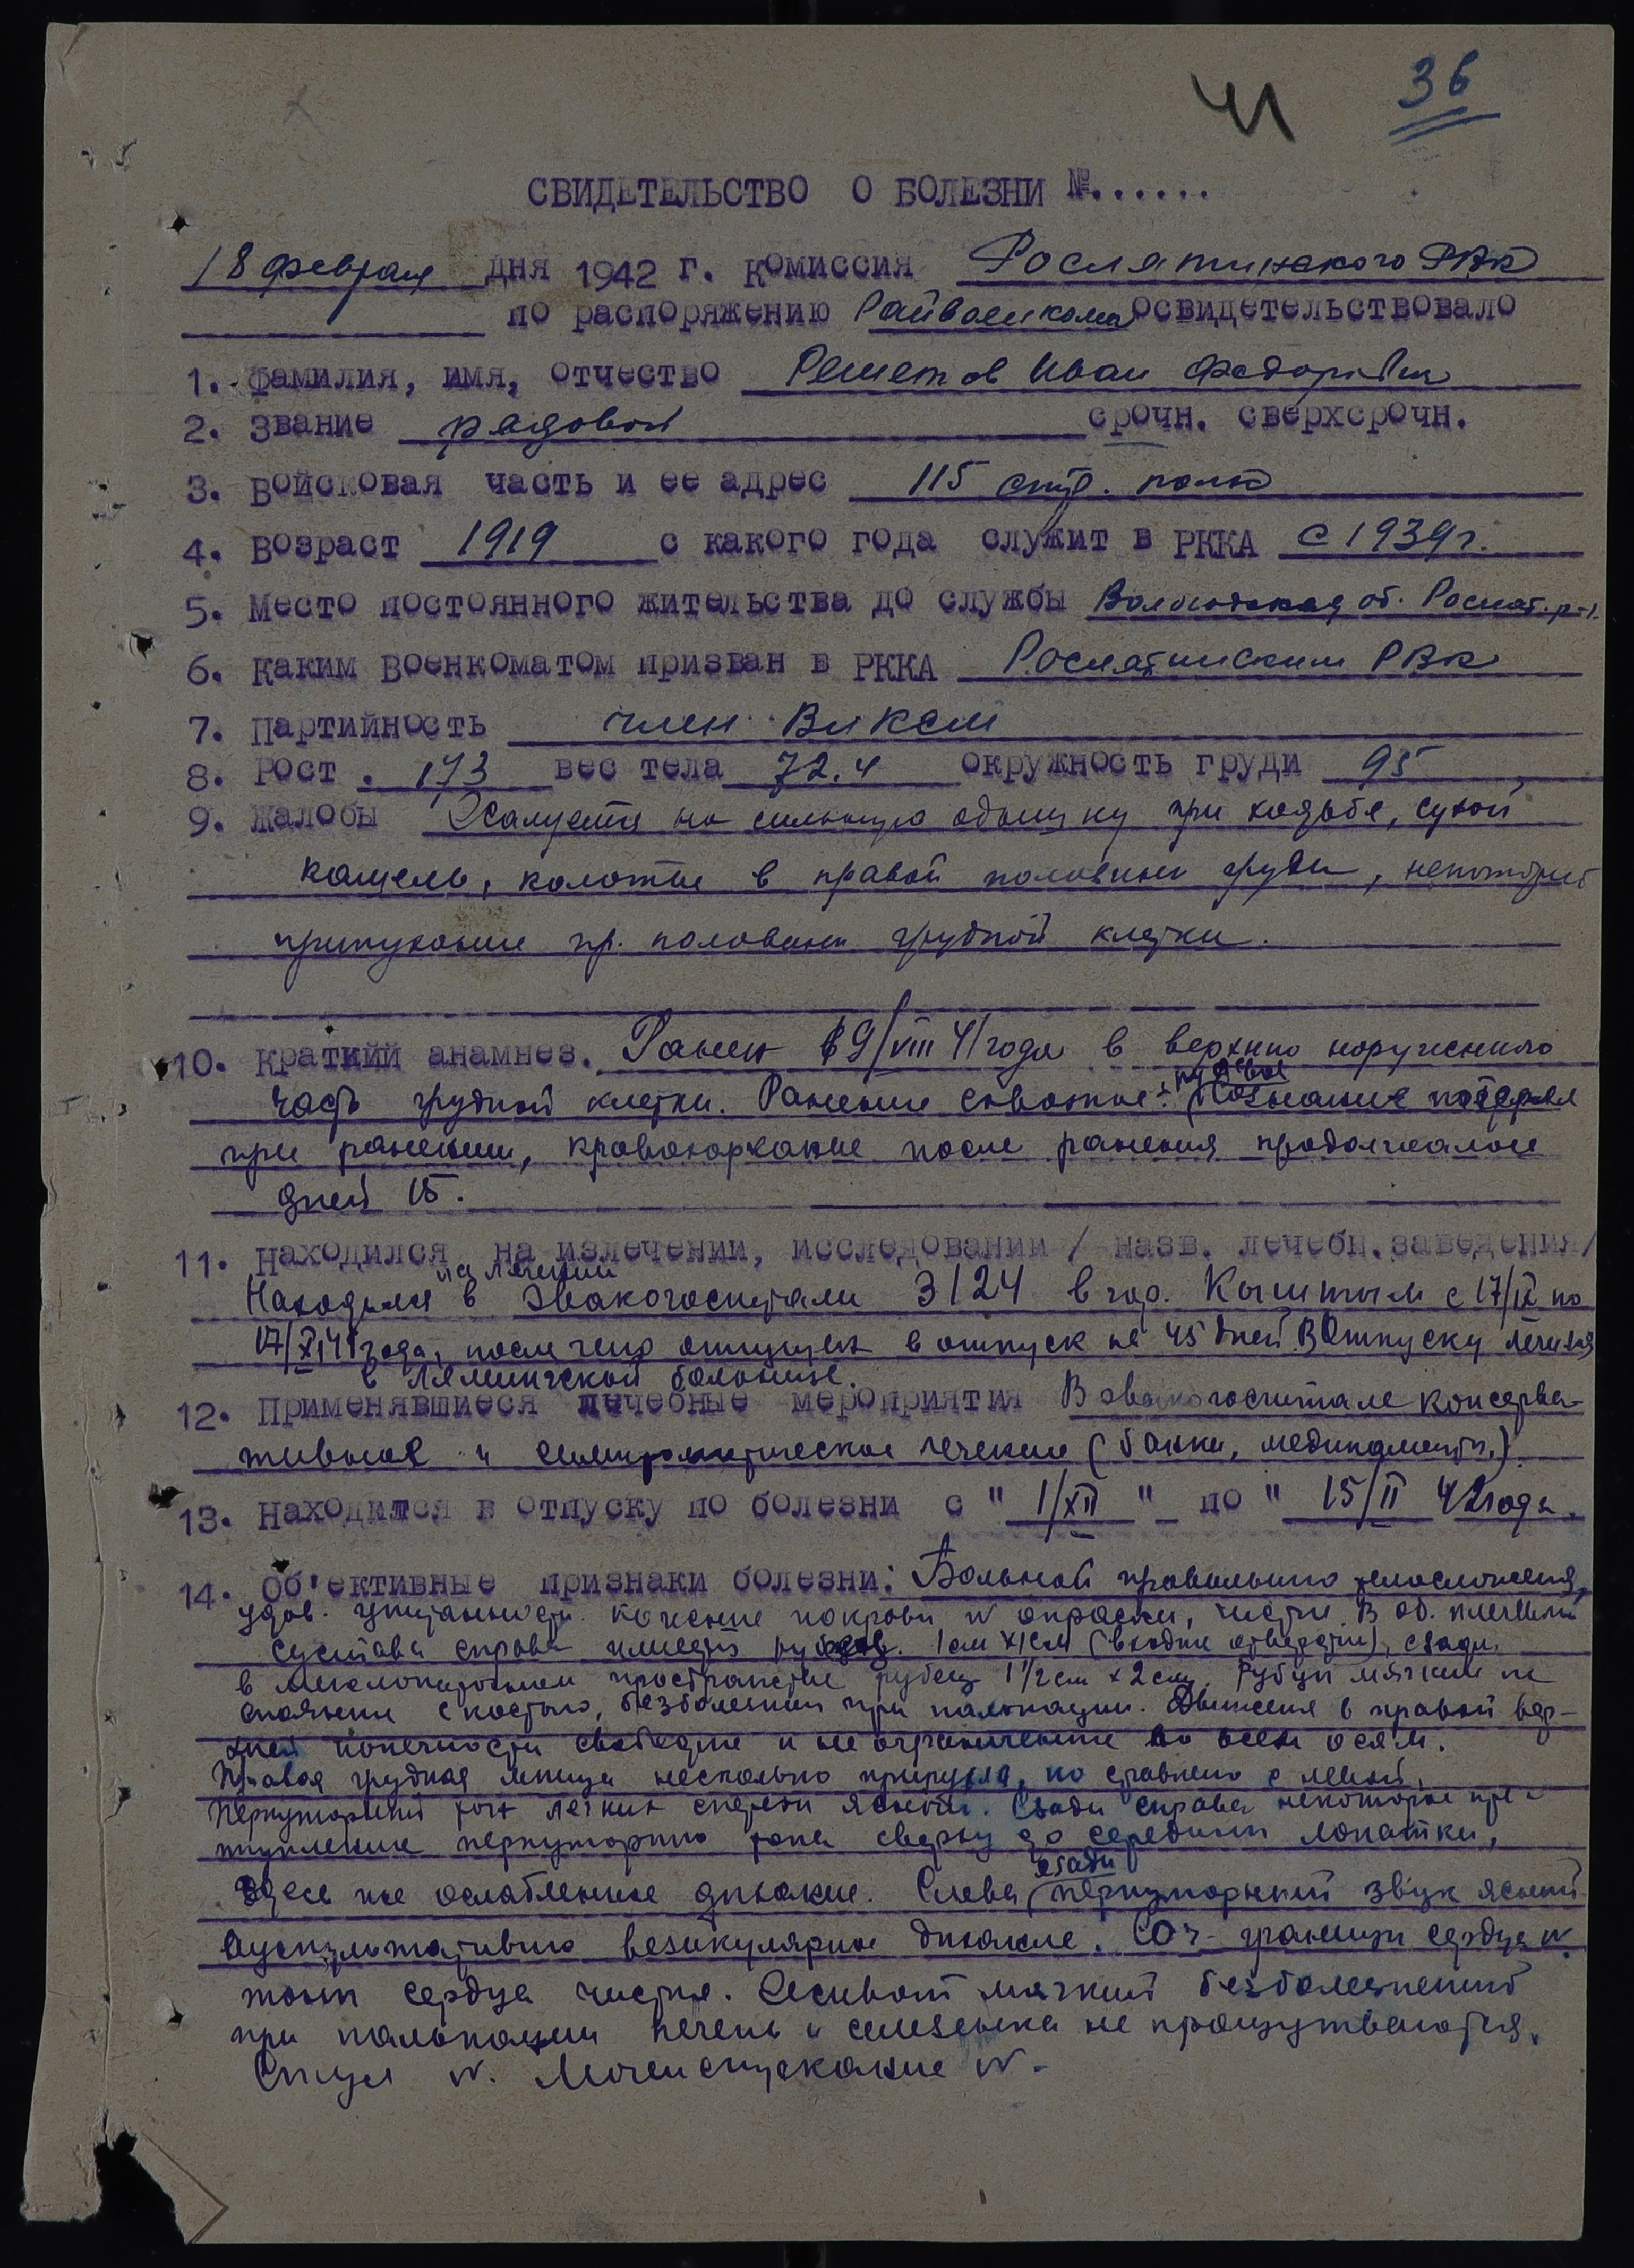 41 36
СВИДЕТЕЛЬСТВО О БОЛЕЗНИ №......
18 февраля дня 1942 г. комиссия Рослятинского РВК
по распоряжению Райвоенкома освидетельствовало
1. Фамилия, имя, отчество Решетов Иван Федорович
2. Звание рядовой срочн. сверхсрочн.
3. Войсковая часть и ее адрес 115 стр. полк
4. Возраст 1919 с какого года служит в РККА с 1939 г.
5. Место постоянного жительства до службы Вологодская об. Рослят. р-н.
6. Каким военкоматом призван в РККА Рослятинским РВК
7. Партийность член ВЛКСМ
8. Рост . 173 вес тела 72.4 окружность груди 95
9. Жалобы Жалуется на сильную одышку при ходьбе, сухой
кашель, колотье в правой половине груди,
припухание пр. половины грудной клетки.
10. Краткий анамнез. Ранен 9/VIII 41 года в верхнюю наружную
часть грудной клетки. Ранение сквозное пулевое Сознание потерял
при ранении, кровохаркание после ранения продолжалось
дней 15.
11. Находился на излечении, исследовании / назв. лечебн. заведения/
Находился на лечении в эвакогоспитали 3124 в гор. Кыштым с 17/IX по
17/XI 41 года, после чего отпущен в отпуск на 45 дней. В Отпуску лечился
в больнице.
12. Применявшиеся лечебные мероприятия В эвакогоспитале консерва-
тивное и симптоматическое лечение (банки, медикаменты.)
13. Находится в отпуску по болезни с " 1/XII " по " 15/II 42 года.
14. Об'ективные признаки болезни: Больной правильного телосложения,
удов. упитанности. Кожные покровы N окраски, чистые. В об. плечевого
сустава справа имеется рубец. 1 см х 1 см (входное отверстие), сзади
в межлопаточном пространстве рубец 1 1/2 см х 2 см. Рубцы мягкие не
спаяны с костью, безболезнен при пальпации. Движения в правой верх-
ней конечности свободные и не ограничены во всех осям.
Правая грудная мышца несколько припухла, по сравнению с левой.
Перкуторный тон легких спереди ясный. Сзади справа некоторое при-
тупление перкуторного тона сверху до середины лопатки,
здесь же ослабленное дыхание. Слева сзади перкуторный звук ясный
Аускультативно везикулярное дыхание. Со ч- границы сердца N.
тоны сердца чистые. Живот мягкий безболезненный
при пальпации печень и селезенка не прощупываются.
Стул N. Мочеиспускание N.